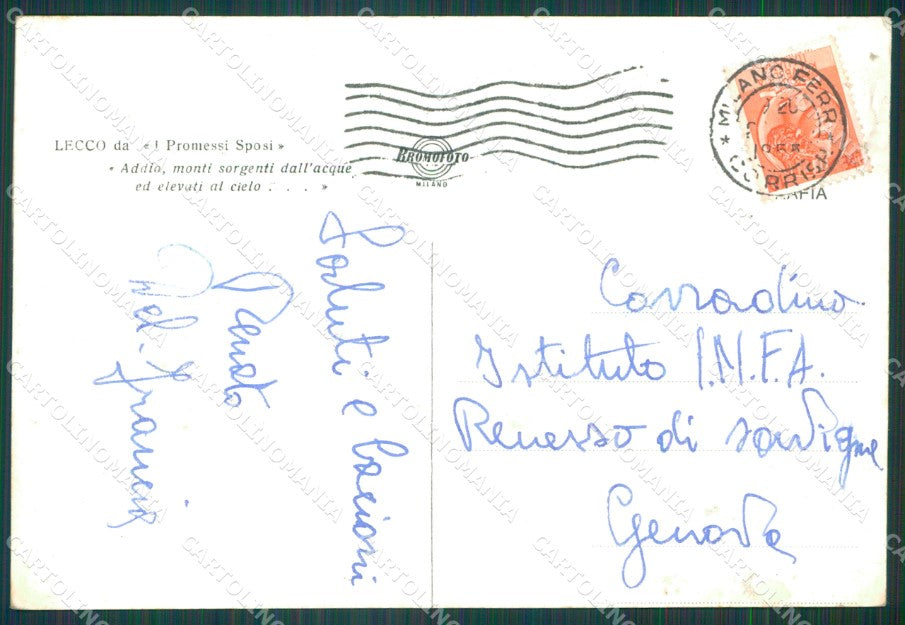 LECCO da «I Promessi Sposi»
« Addio, monti sorgenti dall'acque
ed elevati al cielo . . . »
BROMOFOTO
MILANO
* MILANO FERR. *
CORRISP.
RAFIA
Saluti e bacioni
Renato
Corradino
Istituto I.N.F.A.
Renesso di Savigne
Genova
CARTOLINOMANIA